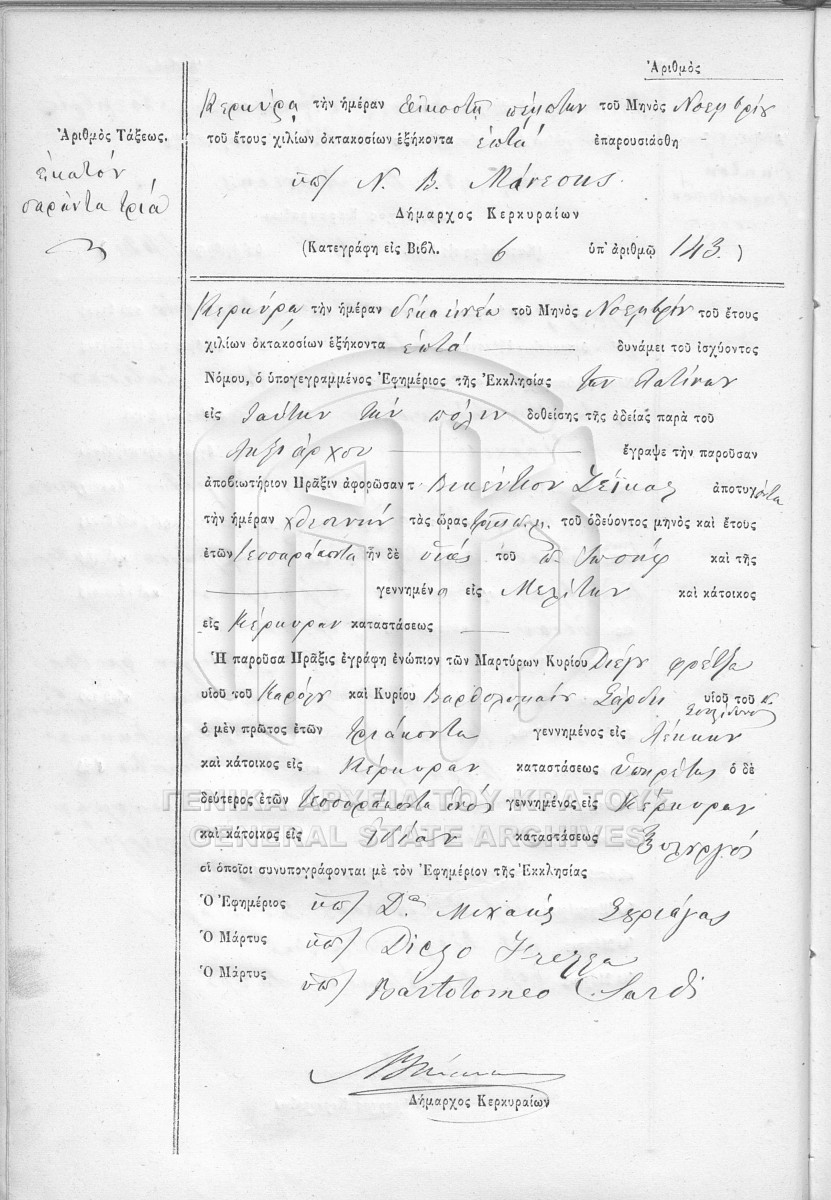 Ἀριθμὸς
Κερκύρᾳ τὴν ἡμέραν εἰκοστὴ πέμπτην τοῦ Μηνὸς Νοεμβρίου
τοῦ ἔτους χιλίων ὀκτακοσίων ἑξήκοντα ἑπτά ἐπαρουσιάσθη
Ἀριθμὸς Τάξεως.
ἑκατὸν
σαράντα τρία
ὑπ/ Ν. Β. Μάνεσης
Δήμαρχος Κερκυραίων
(Κατεγράφη εἰς Βιβλ. 6 ὑπ' ἀριθμῷ 143.)
Κερκύρᾳ τὴν ἡμέραν δέκα ἐννέα τοῦ Μηνὸς Νοεμβρίου τοῦ ἔτους
χιλίων ὀκτακοσίων ἑξήκοντα ἑπτά δυνάμει τοῦ ἰσχύοντος
Νόμου, ὁ ὑπογεγραμμένος Ἐφημέριος τῆς Ἐκκλησίας τῶν Λατίνων
εἰς ταύτην τὴν πόλιν δοθείσης τῆς ἀδείας παρὰ τοῦ
Ληξιάρχου ἔγραψε τὴν παροῦσαν
ἀποβιωτήριον Πρᾶξιν ἀφορῶσαν τ Βικέντιον ἀποτυχόντα
τὴν ἡμέραν χθεσινὴν τὰς ὥρας τοῦ ὁδεύοντος μηνὸς καὶ ἔτους
ἐτῶν τεσσαράκοντα ἦν δὲ υἱὸς τοῦ Ἰωσὴφ καὶ τῆς
γεννημένο εἰς Μελίτην καὶ κάτοικος
εἰς Κέρκυραν καταστάσεως
Ἡ παροῦσα Πρᾶξις ἐγράφη ἐνώπιον τῶν Μαρτύρων Κυρίου Διέγο Φρέτζα
υἱοῦ τοῦ Καρόλου καὶ Κυρίου Βαρθολομαίου Σάρδη υἱοῦ τοῦ
ὁ μὲν πρῶτος ἐτῶν τριάκοντα γεννημένος εἰς Λέκκην
καὶ κάτοικος εἰς Κέρκυραν καταστάσεως ὑπηρέτης ὁ δὲ
δεύτερος ἐτῶν τεσσαράκοντα ἑνός γεννημένος εἰς Κέρκυραν
καὶ κάτοικος εἰς ἰδίαν καταστάσεως ξυλουργός
οἱ ὁποῖοι συνυπογράφονται μὲ τὸν Ἐφημέριον τῆς Ἐκκλησίας
Ὁ Ἐφημέριος ὑπ/ Δν Μιχαὴλ
Ὁ Μάρτυς ὑπ/ Diego Frezza
Ὁ Μάρτυς ὑπ/ Bartolomeo Sardi
Δήμαρχος Κερκυραίων
ΓΕΝΙΚΑ ΑΡΧΕΙΑ ΤΟΥ ΚΡΑΤΟΥΣ
GENERAL STATE ARCHIVES